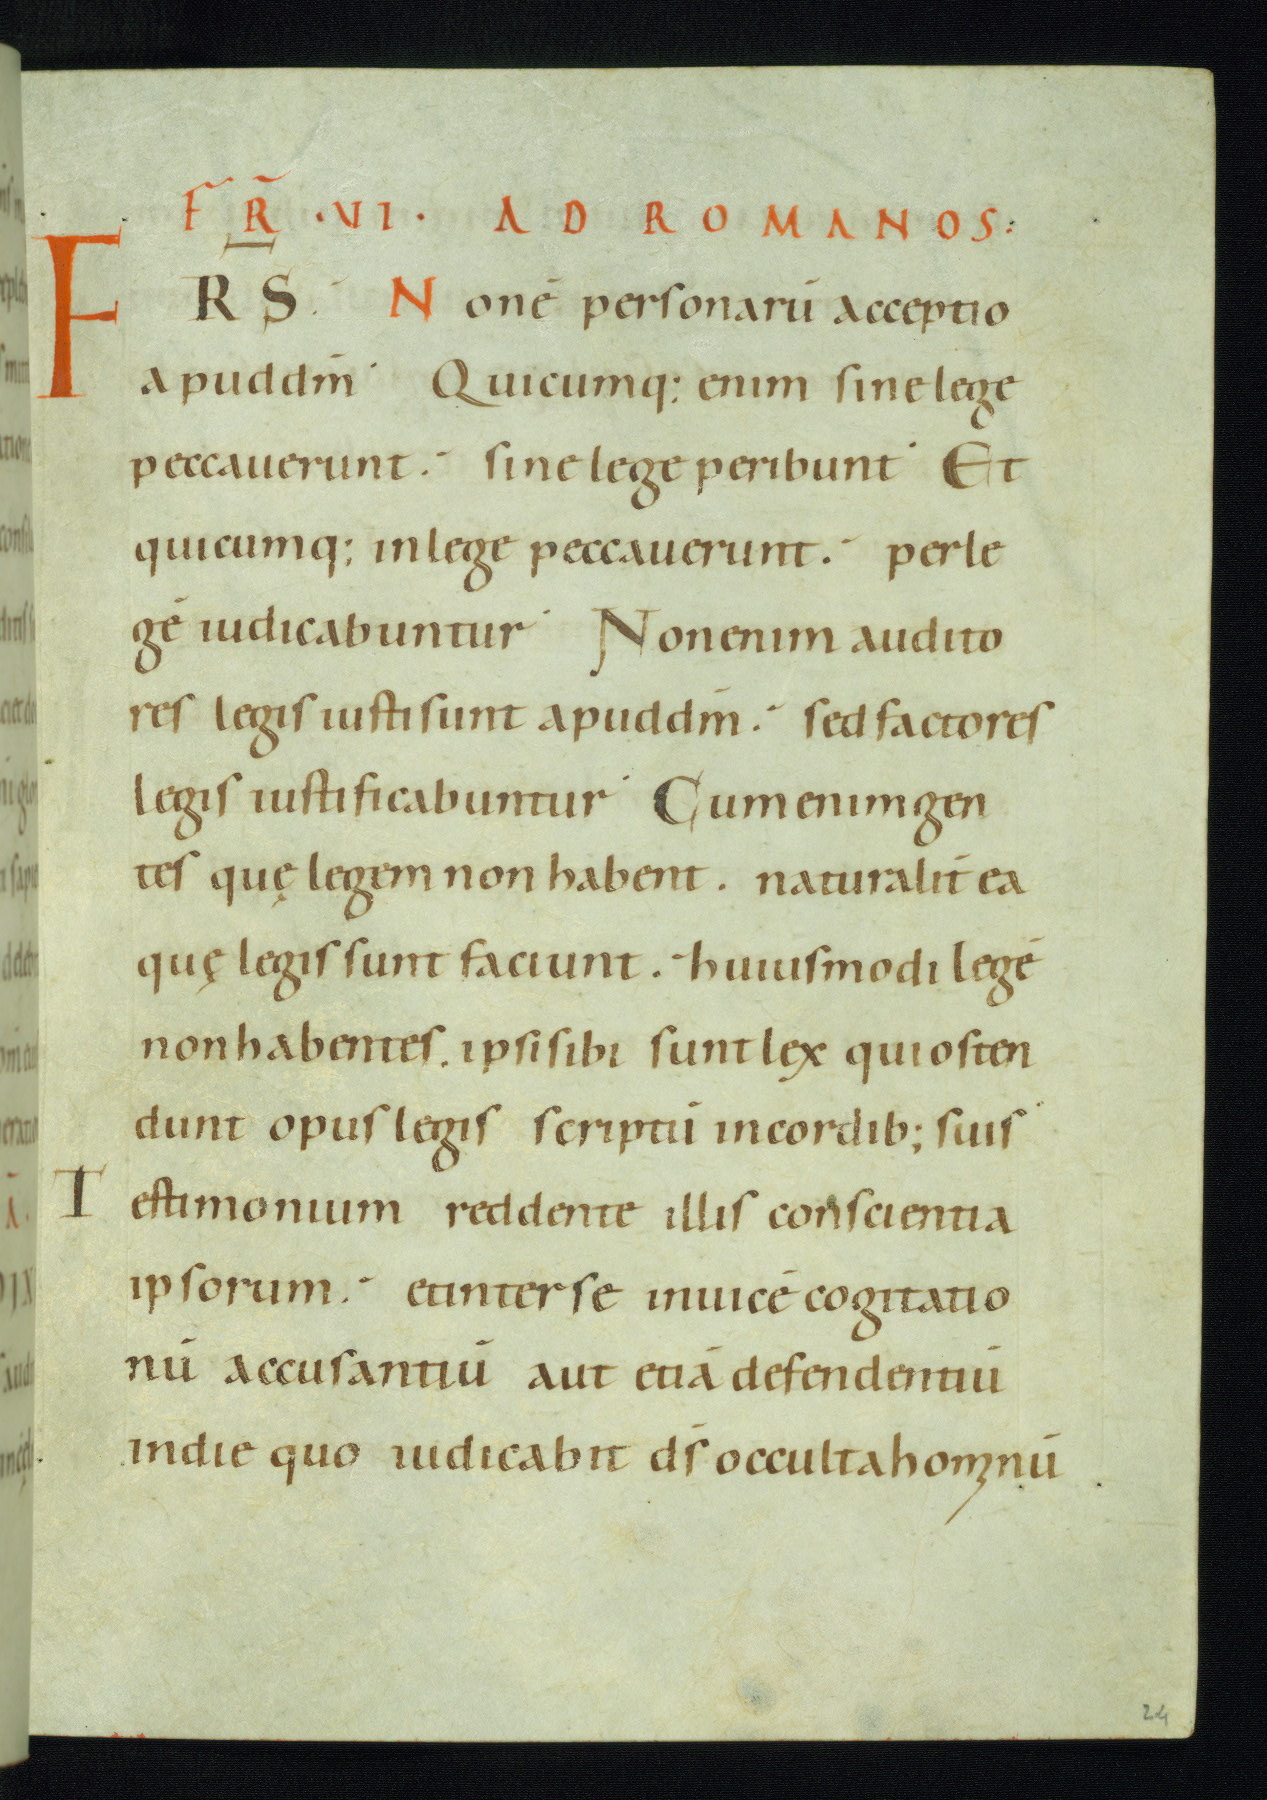 FR̄ ·VI· AD ROMANOS:
FRS. Non ē personarū acceptio
apud dm̄ Quicumq; enim sine lege
peccauerunt. sine lege peribunt Et
quicumq; in lege peccauerunt. per le
gē iudicabuntur Non enim audito
res legis iusti sunt apud dm̄. sed factores
legis iustificabuntur Cum enim gen
tes quę legem non habent. naturalit̄ ea
quę legis sunt faciunt. huiusmodi legē
non habentes. ipsi sibi sunt lex qui osten
dunt opus legis scriptū in cordib; suis
Testimonium reddente illis conscientia
ipsorum. et inter se inuicē cogitatio
nū accusantiū aut etiā defendentiū
in die quo iudicabit ds̄ occulta hominū
24